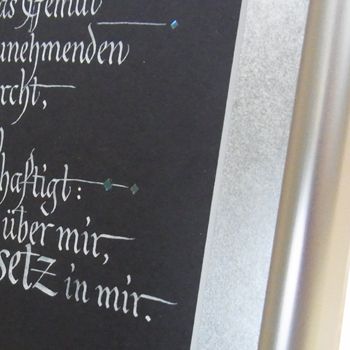 as Gemüt
unehmenden
rcht,
haftigt:
über mir,
setz in mir.